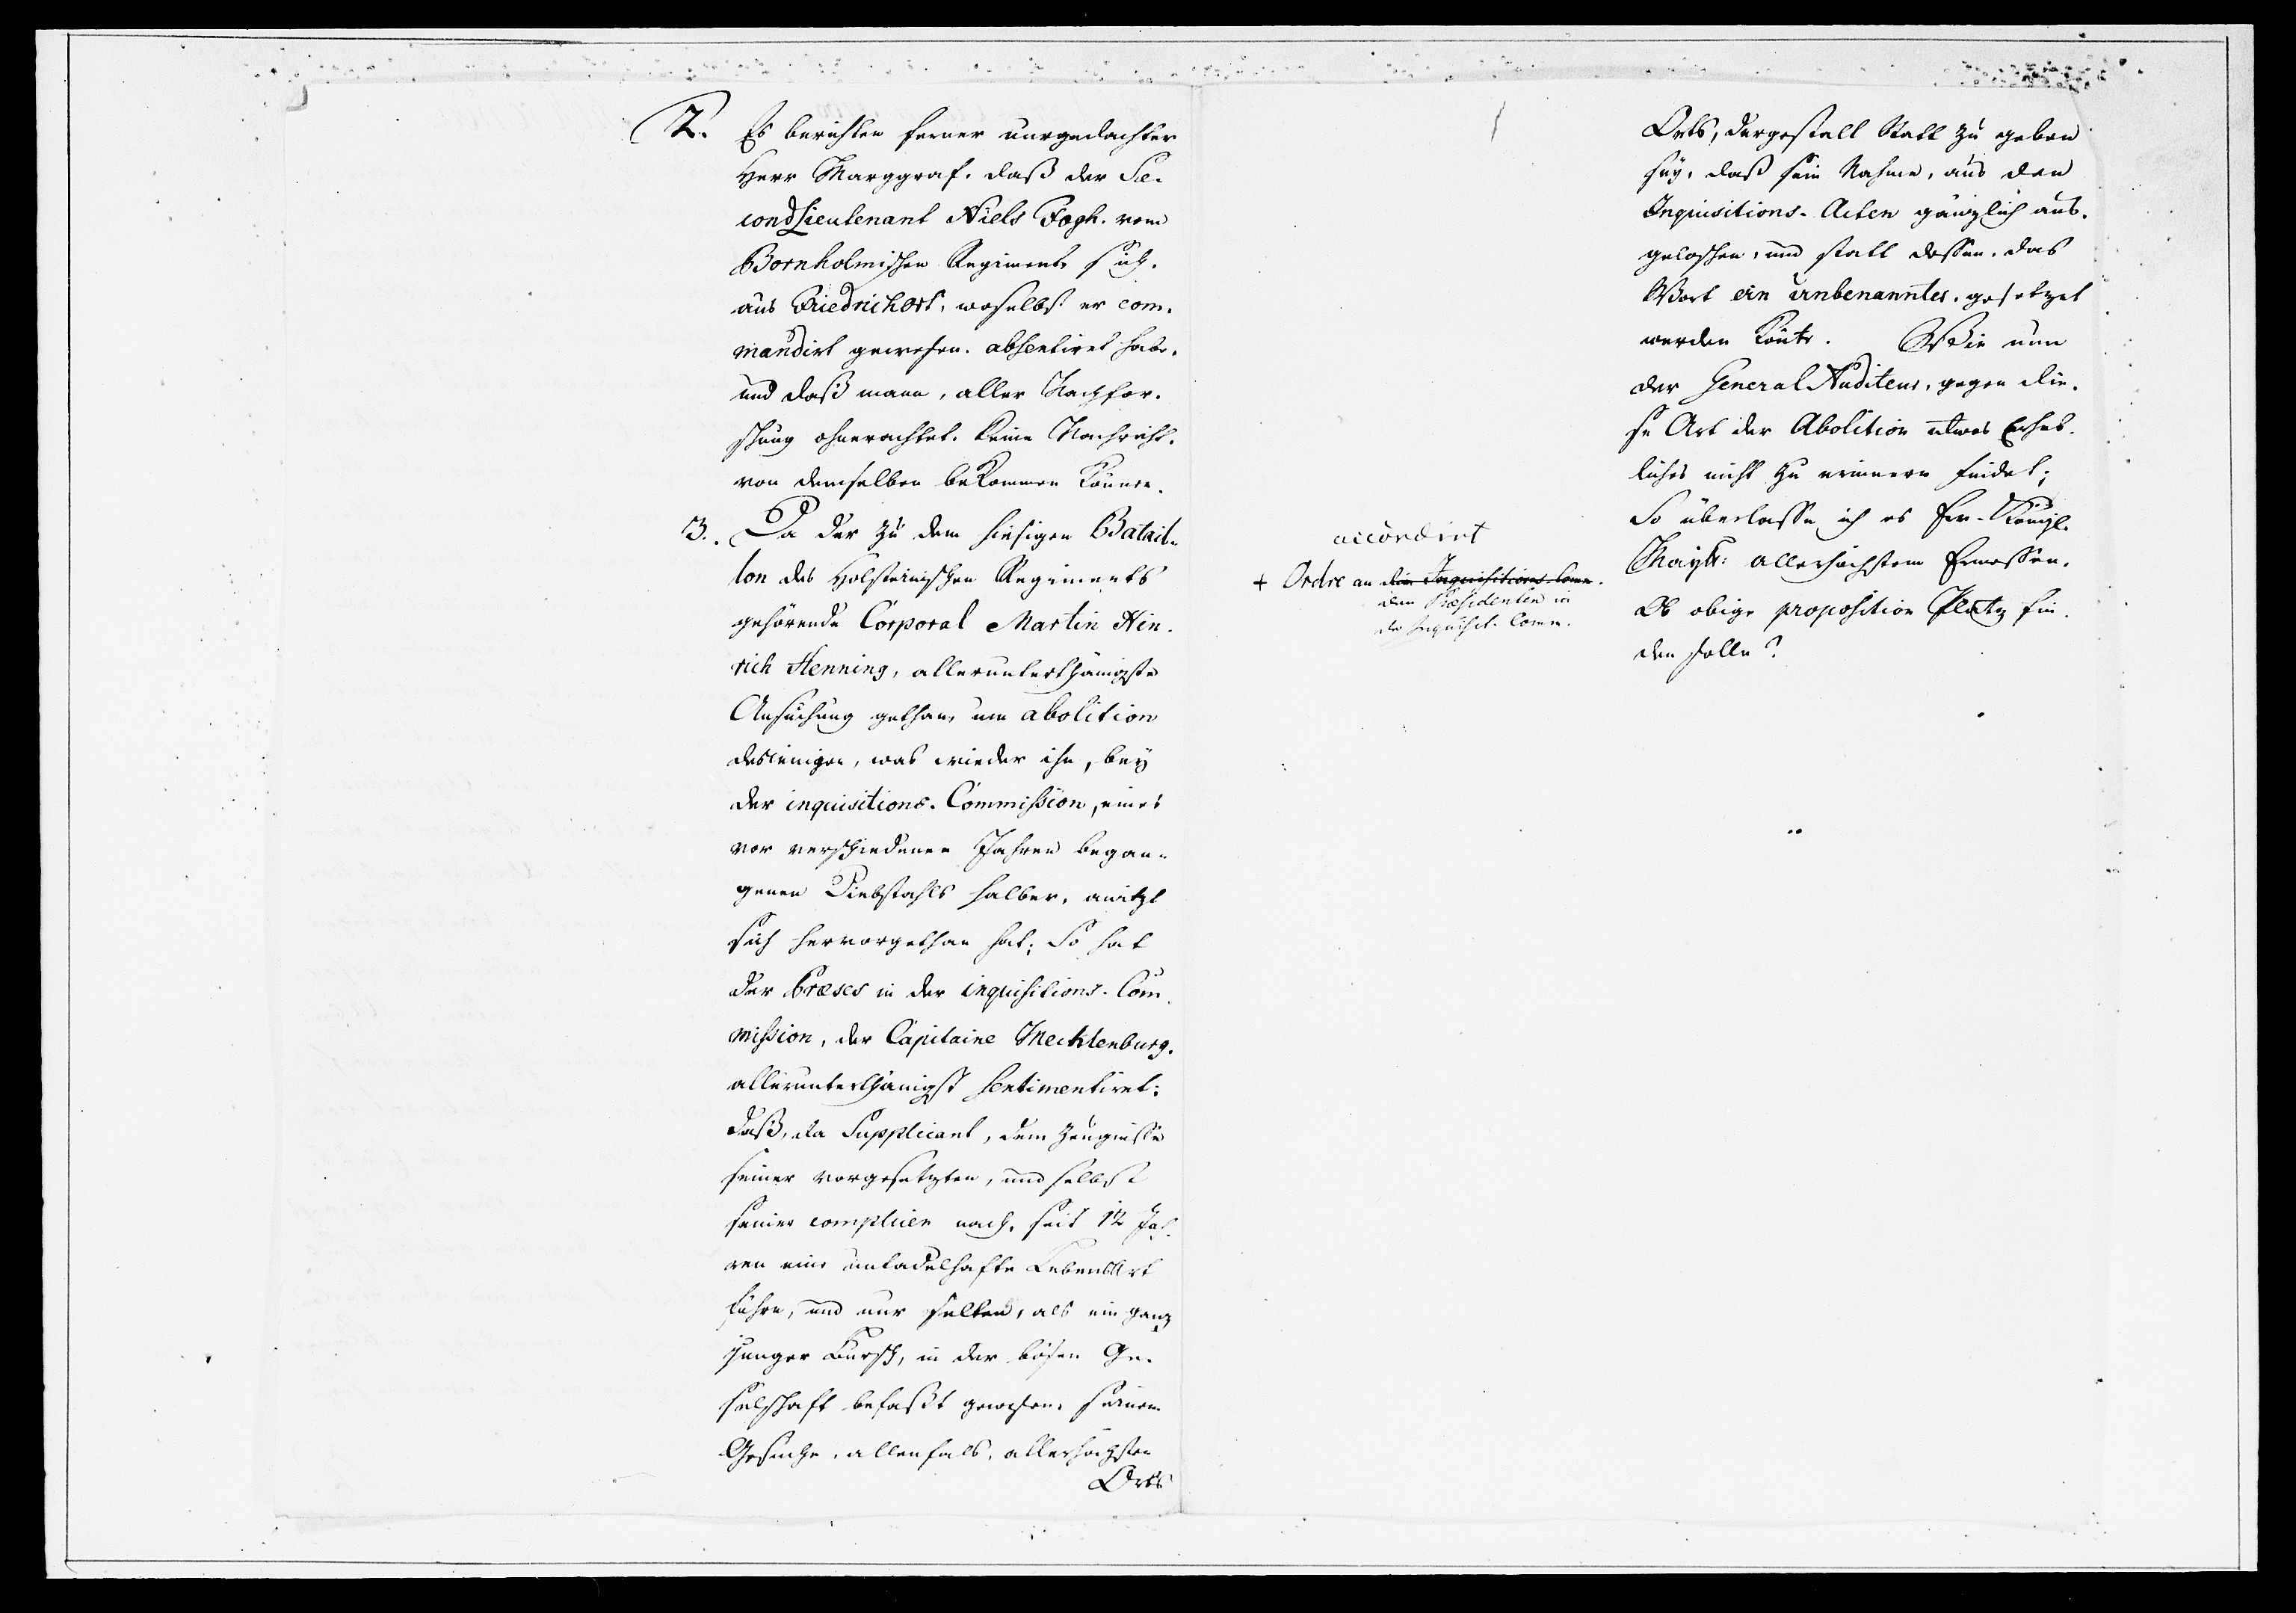 2. Es berichten ferner nurgedachter
Herr Marggraf. daß der Se-
condLieutenant Niels Fogh. vom
Bornholmischen Regiments sich.
aus Friedrichort, woselbst er com-
mandirt gewesen. absentiret habe.
und daß mann, aller Nachfor-
schung ohnerachtet. keine Nachricht.
von demselben bekommen könne.
3. Da der zu dem hiesigen Batail-
lon des Holsteinischen Regiments
gehörende Corporal Martin Hin-
rich Henning, allerunterthänigste
Ansuchung gethan, um abolition
desienigen, was wieder ihn, bey
der inquisitions-Commission, eines
vor verschiedenen Jahren began-
genen Diebstahls halber, anitzt
sich hervorgethan hat; So hat
der Præses in der inquisitions-Com-
mission, der Capitaine Mecklenburg.
allerunterthänigst sentimentiret:
daß, da Supplicant, dem Zeugnisse
seiner vorgesetzten, und selbst
seiner complicen nach, seit 12 Jah-
ren eine untadelhafte LebensArt
führe, und nur selten, als ein ganz
junger Bursch, in der bösen Ge-
selschaft befaßt gewesen, seinem
Gesuche, allenfals, allerhöchsten
Orts
accordirt
+ Ordre an die Inquisitions-Comm.
den Præsidenten in
der Inquisit. Comm.
Orts, dergestalt Statt zu geben
sey, daß sein Nahme, aus den
Inquisitions-Acten gänzlich aus-
geloschen, und statt dessen, das
Wort ein unbenannter. gesetzet
werden könte. Wie nun
der General Auditeur, gegen die-
se Art der Abolition etwas Erheb-
liches nicht zu erinnern findet;
So überlasse ich es Ew. Königl.
Maytt: allerhöchstem Ermessen,
Ob obige proposition Platz fin-
den solle?